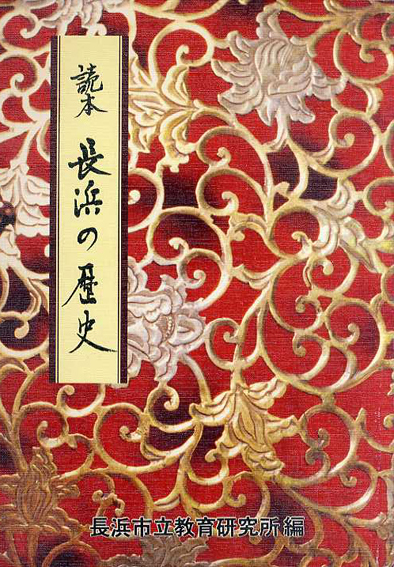 読本 長浜の歴史
長浜市立教育研究所編